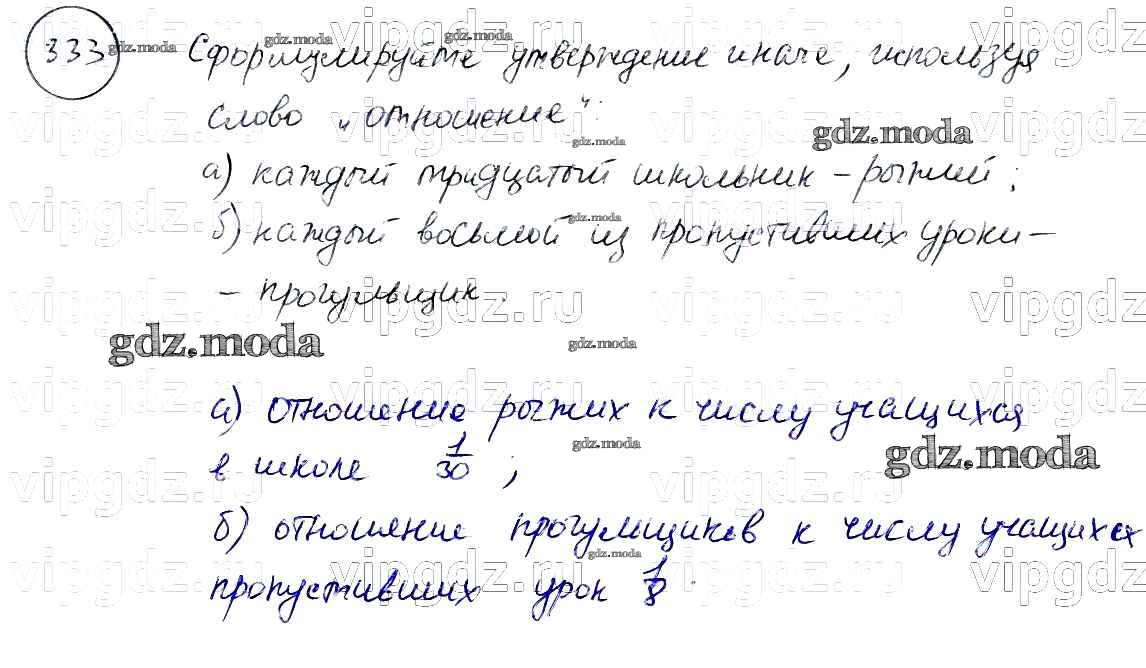 333 Сформулируйте утверждение иначе, используя
слово „отношение":
а) каждый тридцатый школьник – рыжий;
б) каждый восьмой из пропустивших уроки –
– прогульщик.
а) отношение рыжих к числу учащихся
в школе 1/30 ;
б) отношение прогульщиков к числу учащихся
пропустивших урок 1/8